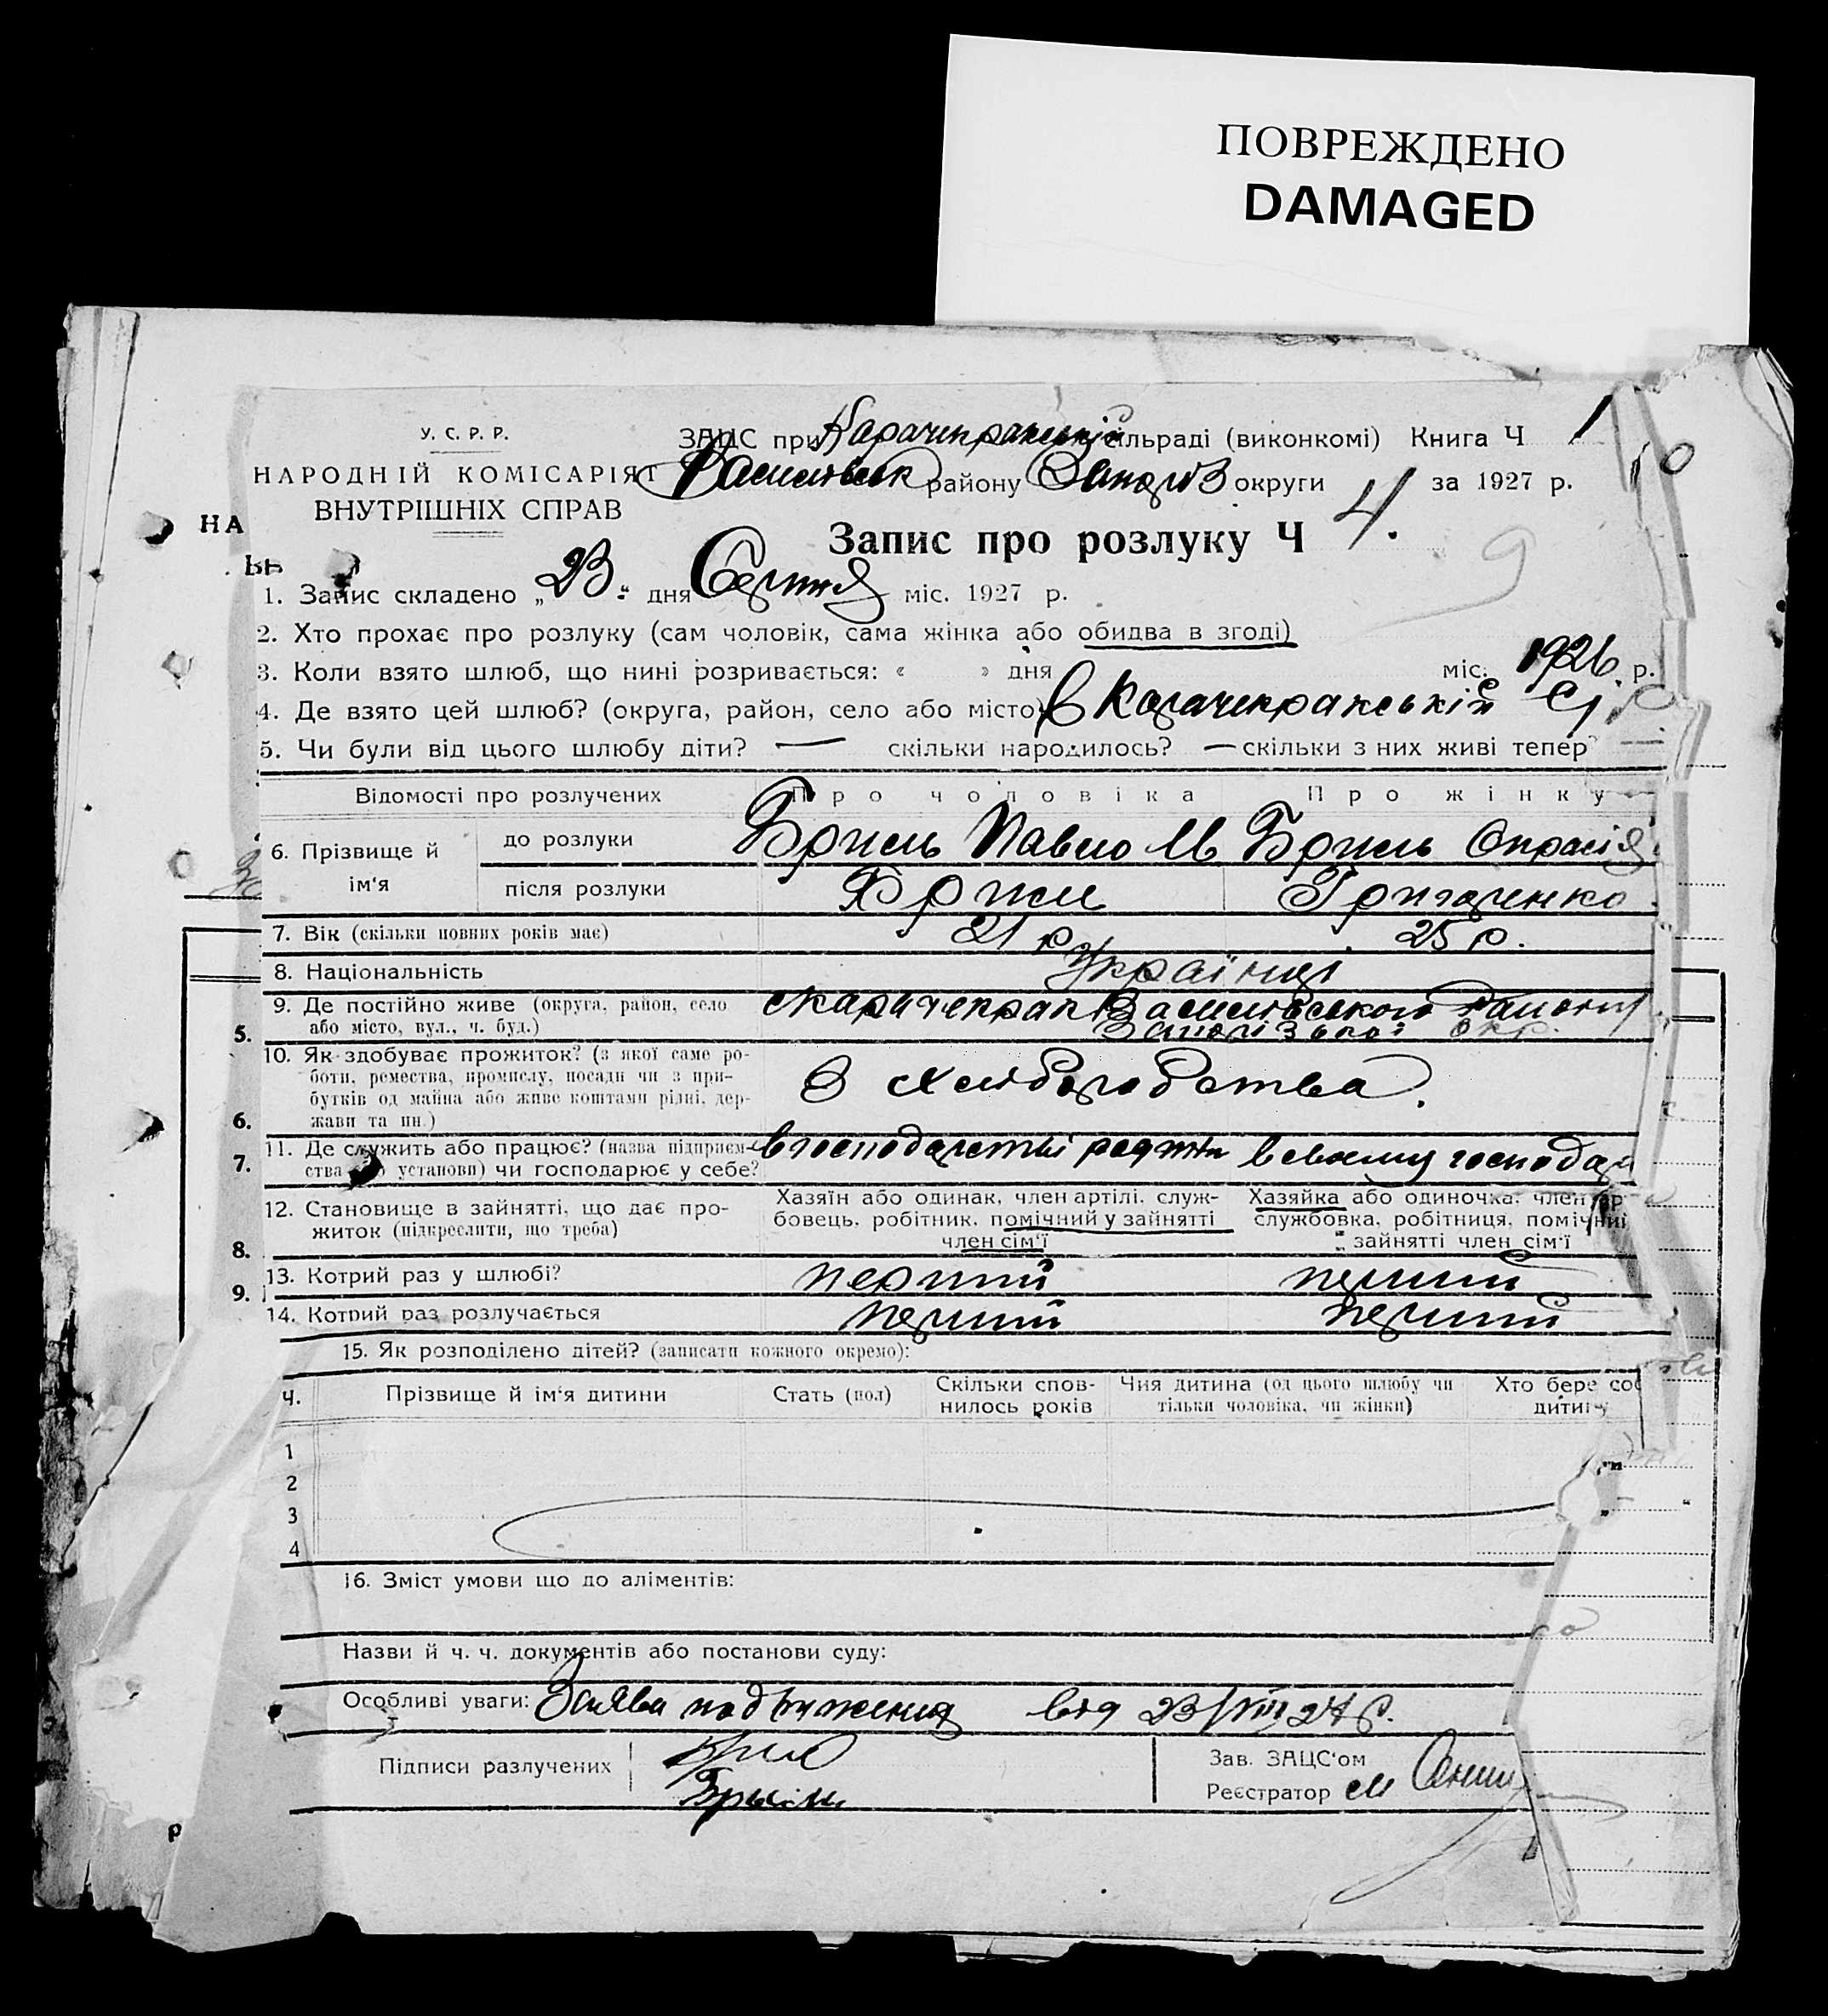 ПОВРЕЖДЕНО
DAMAGED
У. С. Р. Р.
НАРОДНІЙ КОМІСАРІЯТ
ВНУТРІШНІХ СПРАВ
ЗАЦС при Карачекракській сільраді (виконкомі) Книга Ч 1
району округи за 1927 р.
НА
Запис про розлуку Ч 4.
9
1. Запис складено „23“ дня Серпня міс. 1927 р.
2. Хто прохає про розлуку (сам чоловік, сама жінка або обидва в згоді)
3. Коли взято шлюб, що нині розривається: « » дня міс. 1926 р.
4. Де взято цей шлюб? (округа, район, село або місто) в Карачекракській
5. Чи були від цього шлюбу діти? — скільки народилось? — скільки з них живі тепер? —
Відомості про розлучених Про чоловіка Про жінку
6. Прізвище й ім'я
до розлуки Бриль Павло М Бриль
після розлуки Бриль
7. Вік (скільки повних років має) 21 р. 25 р.
8. Національність Українці
9. Де постійно живе (округа, район, село Карачекрак Василівського району
або місто, вул., ч. буд.) окр.
5.
10. Як здобуває прожиток? (з якої саме ро-
боти, ремества, промислу, посади чи з при-
бутків од майна або живе коштами рідні, дер-
жави та ин.)
З хліборобства.
6.
11. Де служить або працює? (назва підприєм- в господарстві в своему господар
ства установи) чи господарює у себе?
7.
12. Становище в зайнятті, що дає про-
житок (підкреслити, що треба)
Хазяїн або одинак, член артілі, служ-
бовець, робітник, помічний у зайнятті
член сім'ї
Хазяйка або одиночка: член ар
службовка, робітниця, помічни
зайнятті член сім'ї
8.
13. Котрий раз у шлюбі? перший перший
9.
14. Котрий раз розлучається перший перший
15. Як розподілено дітей? (записати кожного окремо):
Ч. Прізвище й ім'я дитини Стать (пол) Скільки спов-
нилось років Чия дитина (од цього шлюбу чи
тільки чоловіка, чи жінки) Хто бере соб
дитину
1
2
3
4
16. Зміст умови що до аліментів:
Назви й ч. ч. документів або постанови суду:
Особливі уваги: Заява від 23/VIII 27 р.
Підписи разлучених
Зав. ЗАЦС'ом
Реєстратор